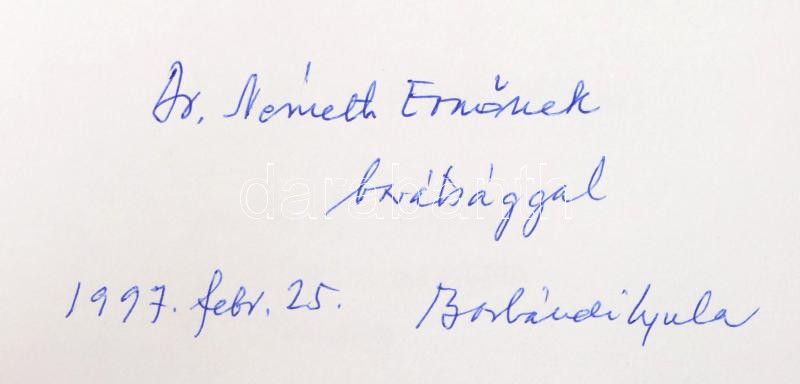 Dr. Németh Ernőnek
barátsággal
darabanth
1997. febr. 25. Borbándi Gyula